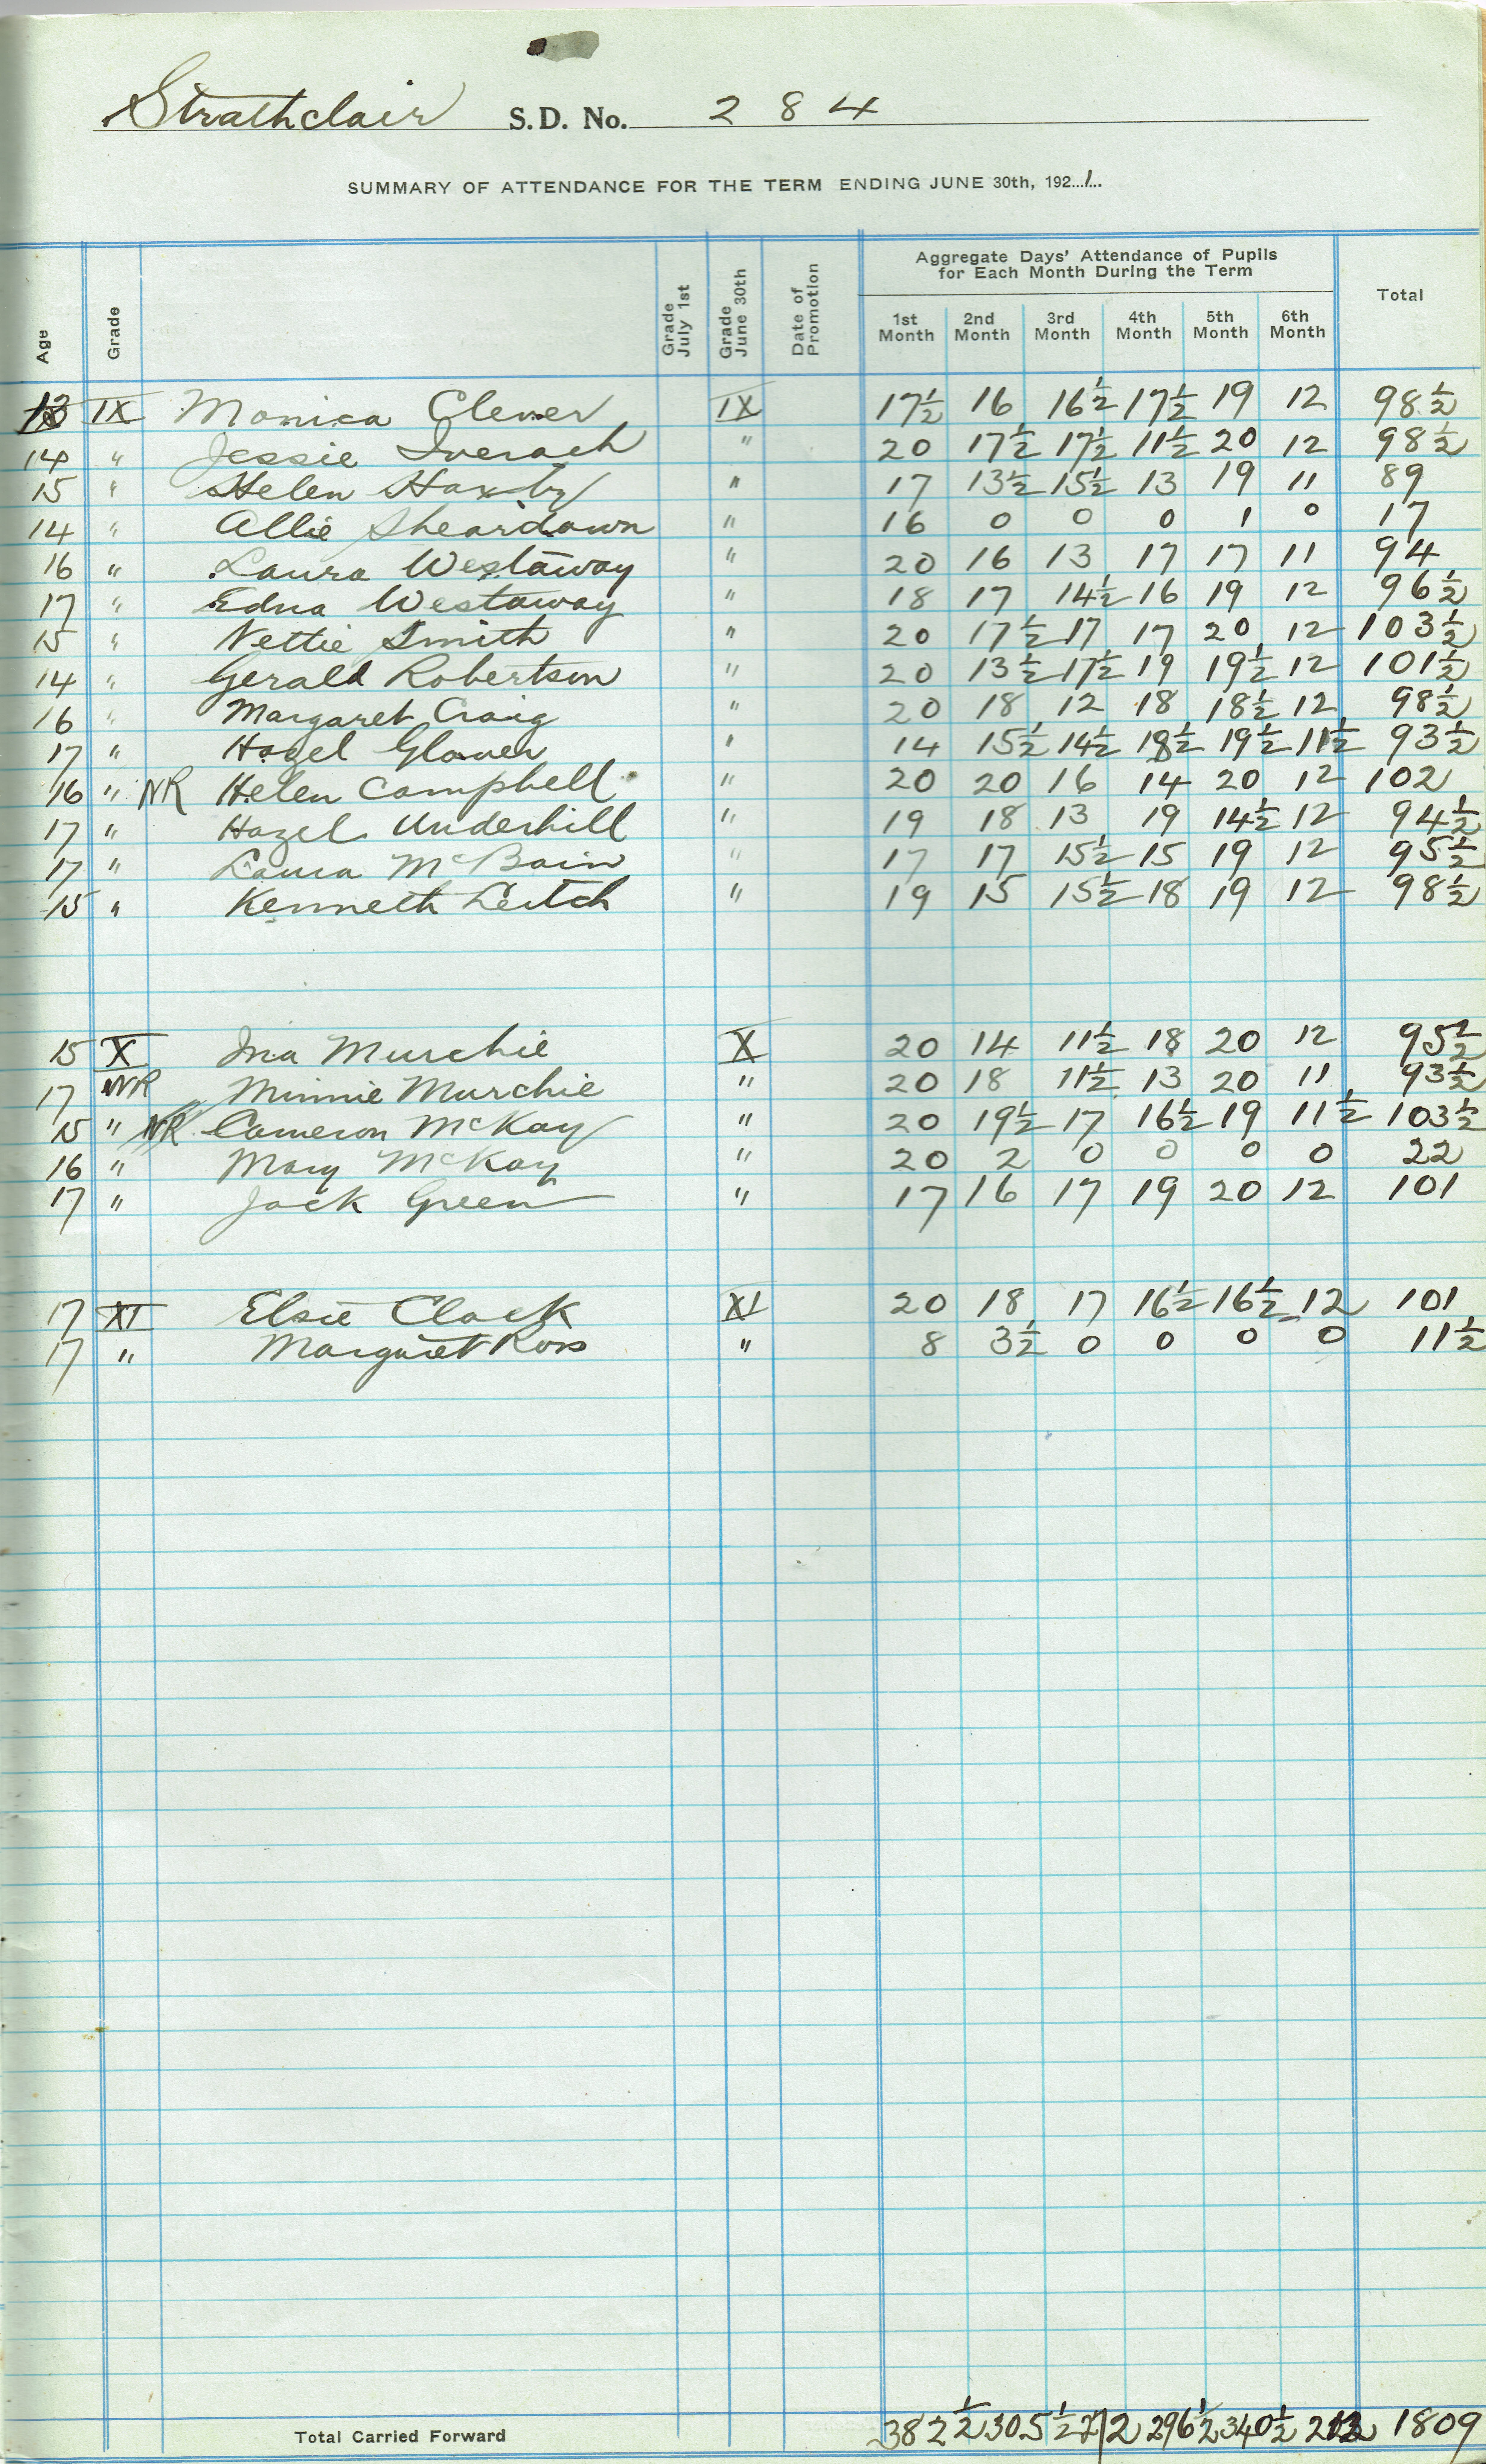 Strathclair S.D. No. 2 8 4
SUMMARY OF ATTENDANCE FOR THE TERM ENDING JUNE 30th, 192...1...
Age Grade Grade July 1st Grade June 30th Date of Promotion Aggregate Days' Attendance of Pupils for Each Month During the Term Total
1st Month 2nd Month 3rd Month 4th Month 5th Month 6th Month
13 IX Monica Clever IX 17½ 16 16½ 17½ 19 12 98½
14 " Jessie Iverach " 20 17½ 17½ 11½ 20 12 98½
15 " Helen Haxby " 17 13½ 15½ 13 19 11 89
14 " Allie Sheardown " 16 0 0 0 1 0 17
16 " Laura Westaway " 20 16 13 17 17 11 94
17 " Edna Westaway " 18 17 14½ 16 19 12 96½
15 " Nettie Smith " 20 17½ 17 17 20 12 103½
14 " Gerald Robertson " 20 13½ 17½ 19 19½ 12 101½
16 " Margaret Craig " 20 18 12 18 18½ 12 98½
17 " Hazel Glover " 14 15½ 14½ 18½ 19½ 11½ 93½
16 " NR Helen Campbell " 20 20 16 14 20 12 102
17 " Hazel Underhill " 19 18 13 19 14½ 12 94½
17 " Laura McBain " 17 17 15½ 15 19 12 95½
15 " Kenneth Leitch " 19 15 15½ 18 19 12 98½
15 X Ina Murchie X 20 14 11½ 18 20 12 95½
17 NR Minnie Murchie " 20 18 11½ 13 20 11 93½
15 " NR Cameron McKay " 20 19½ 17 16½ 19 11½ 103½
16 " Mary McKay " 20 2 0 0 0 0 22
17 " Jack Green " 17 16 17 19 20 12 101
17 XI Elsie Clark XI 20 18 17 16½ 16½ 12 101
17 " Margaret Ross " 8 3½ 0 0 0 0 11½
Total Carried Forward 382½ 305½ 272 296½ 340½ 212 1809